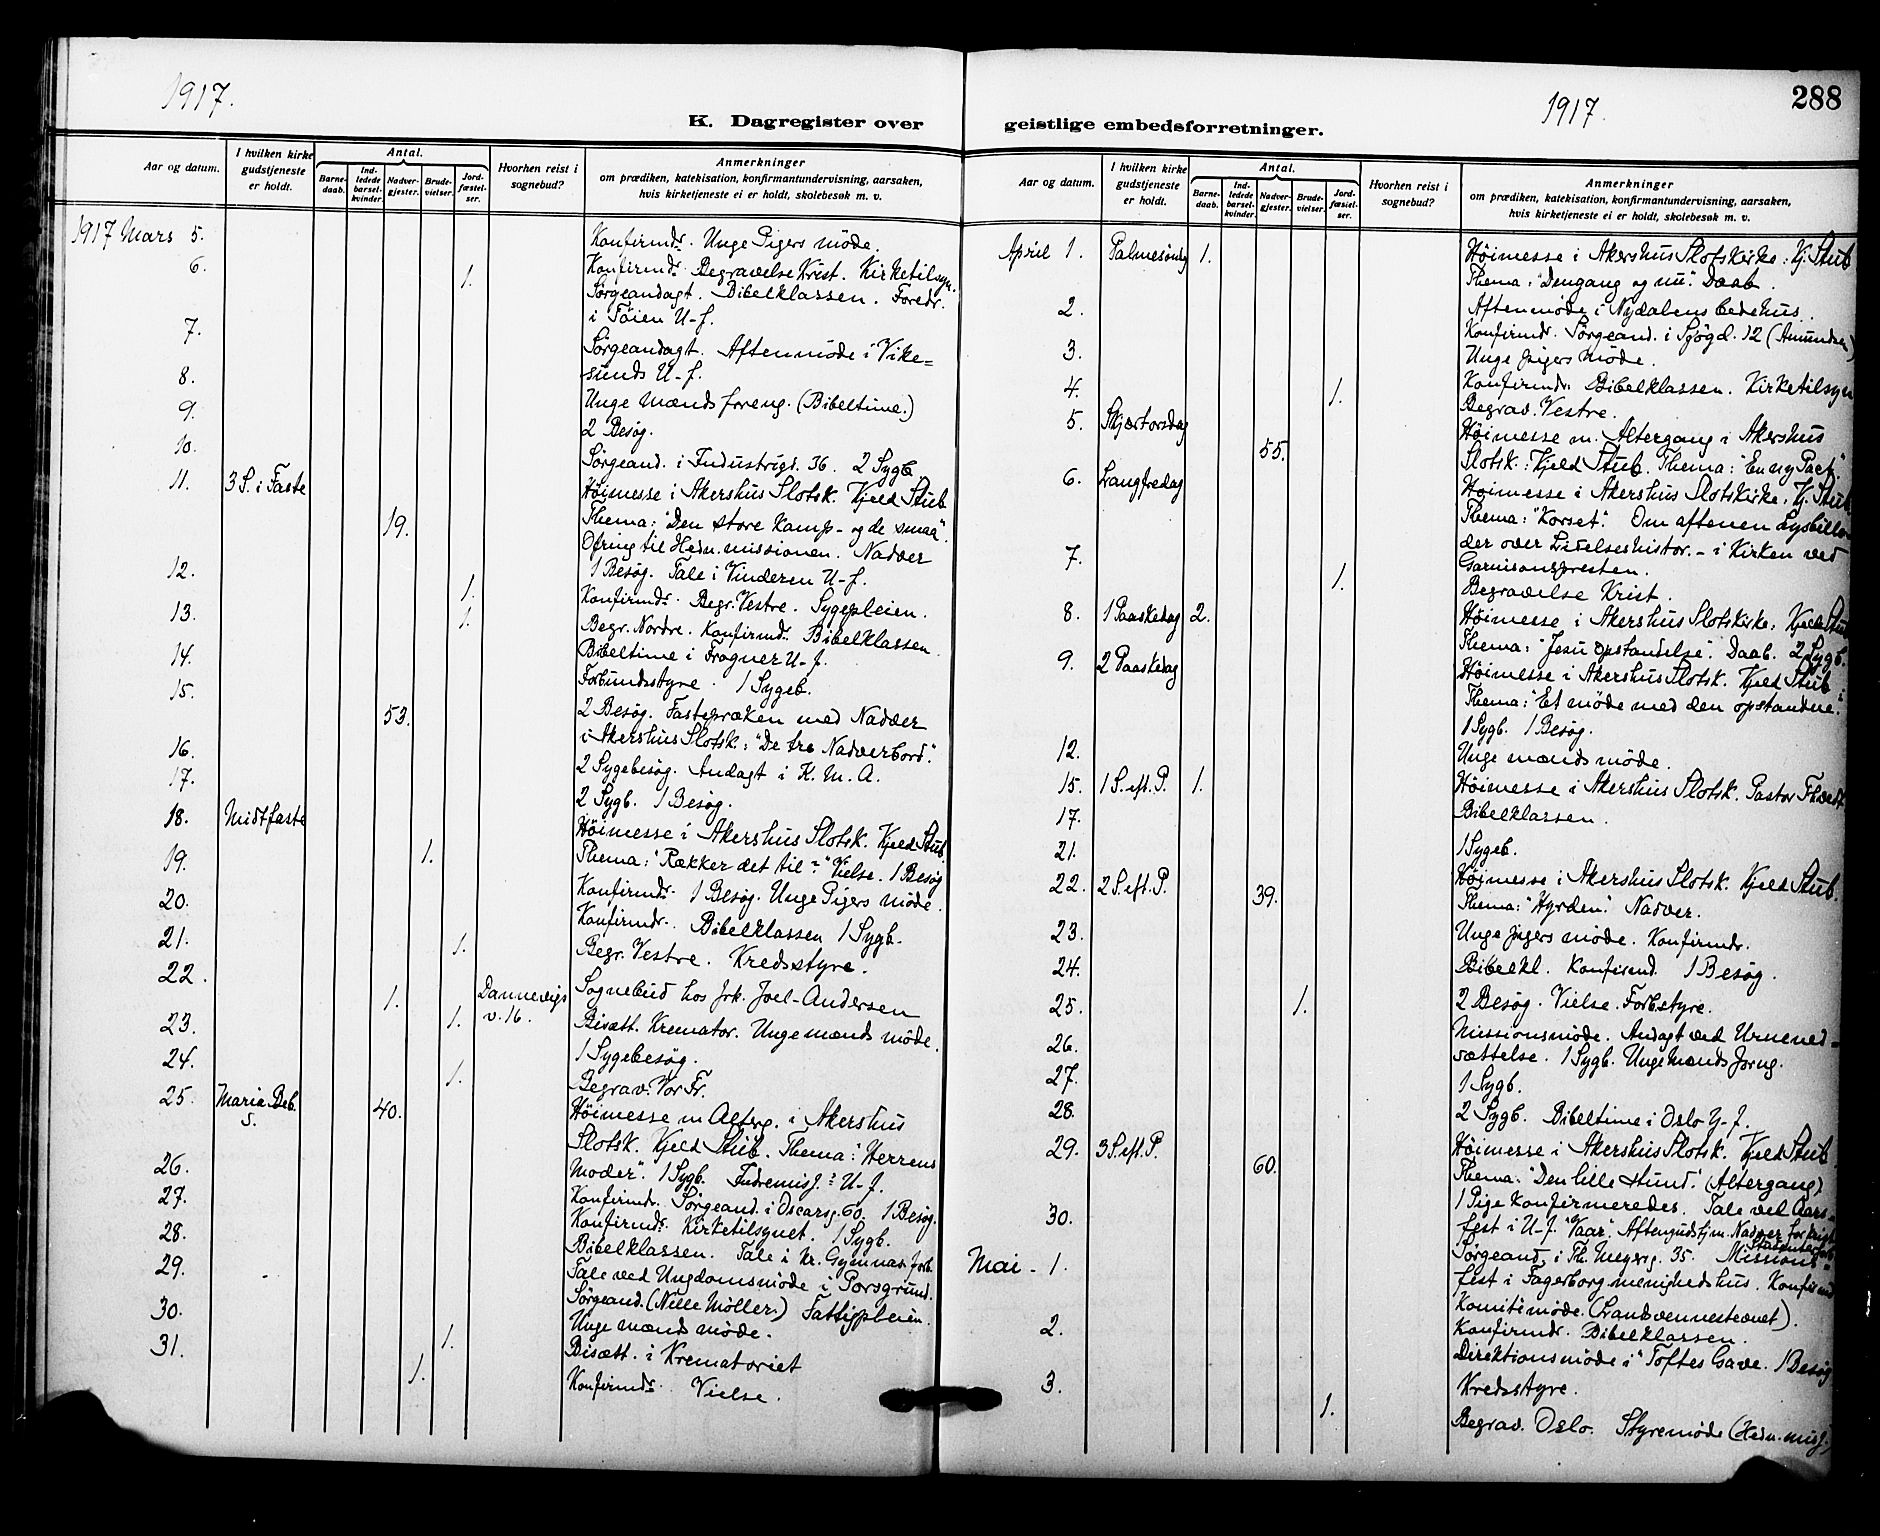 1917.
K. Dagregister over
Aar og datum.
I hvilken kirke gudstjeneste er holdt.
Antal.
Barne-daab.
Ind-ledede barsel-kvinder.
Nadver-gjester.
Brude-vielser.
Jord-fæstel-ser.
Hvorhen reist i sognebud?
Anmerkninger
om prædiken, katekisation, konfirmantundervisning, aarsaken,
hvis kirketjeneste ei er holdt, skolebesøk m. v.
1917 Mars 5. Konfirmdr. Unge Pigers møde.
6. 1. Konfirmdr. Begravelse Krist. Kirketilsyn.
Sørgeandagt. Bibelklassen. Foredr.
i Tøien U-f.
7. Sørgeandagt. Aftenmøde i Vike=
sunds U-f.
8. Unge Mænds foreng. (Bibeltime.)
9. 2 Besøg.
10. Sørgeand. i Industrigd. 36. 2 Sygb.
11. 3 S. i Faste Høimesse i Akershus Slotsk. Kjeld Stub
19. Thema: "Den store Kamp - og de smaa".
Ofring til Hedn. missionen. Nadver
1 Besøg. Tale i Vinderen U-f.
12. 1. Konfirmdr. Begr. Vestre. Sygepleien.
13. 1. Begr. Nordre. Konfirmdr. Bibelklassen.
14. Bibeltime i Frogner U-f.
Forbundsstyre. 1 Sygeb.
15. 53. 2 Besøg. Fastepræken med Nadver
i Akershus Slotsk.: "De tre Nadverbord."
16. 2 Sygebesøg. Andagt i K. M. A.
17. 2 Sygb. 1 Besøg.
18. Midtfaste Høimesse i Akershus Slotsk. Kjeld Stub.
1. Thema: "Rækker det til?" Vielse. 1 Besøg
19. Konfirmdr. 1 Besøg. Unge Pigers møde.
20. Konfirmdr. Bibelklassen 1 Sygb.
21. 1. Begr. Vestre. Kredsstyre.
22. 1. Dannevigs v. 16. Sognebud hos frk. Joel-Andersen
23. 1. Bisætt. Kremator. Unge mænds møde.
1 Sygebesøg.
24. 1. Begrav. Vor Fr.
25. Maria Beb. S. 40. Høimesse m Alterg. i Akershus
Slotsk. Kjeld Stub. Thema: "Herrens
Moder". 1 Sygb. Indremisj. U-f.
26. Konfirmdr. Sørgeand. i Oscarsg. 60. 1 Besøg.
27. Konfirmdr. Kirketilsynet. 1 Sygb.
Bibelklassen. Tale i Kr. Gymnas. forb.
28. Tale ved Ungdomsmøde i Porsgrund.
29. Sørgeand. (Nelle Møller.) Fattigpleien.
30. Unge mænds møde.
1. Bisætt. i Krematoriet
31. 1. Konfirmdr. Vielse.
1917.
288
geistlige embedsforretninger.
Aar og datum.
I hvilken kirke gudstjeneste er holdt.
Antal.
Barne-daab.
Ind-ledede barsel-kvinder.
Nadver-gjester.
Brude-vielser.
Jord-fæstel-ser.
Hvorhen reist i sognebud?
Anmerkninger
om prædiken, katekisation, konfirmantundervisning, aarsaken,
hvis kirketjeneste ei er holdt, skolebesøk m. v.
April 1. Palmesøndg 1. Høimesse i Akershus Slotskirke: Kj. Stub
Thema: "Dengang og nu". Daab.
Aftenmøde i Nydalens bedehus.
2. Konfirmdr. Sørgeand. i 12 (Amundsen)
Unge pigers møde.
3. Konfirmdr. Bibelklassen. Kirketilsyn
4. 1. Begrav. Vestre.
5. Skjærtorsdag 55. Høimesse m. Altergang i Akershus
Slotsk: Kjeld Stub. Thema: "En ny Pact."
6. Langfredag Høimesse i Akershus Slotskirke, Kj. Stub
Thema: "Korset". Om aftenen Lysbille-
der over Lidelseshistor. - i Kirken ved
Garnisonspresten.
7. 1. Begravelse Krist.
8. 1 Paaskedag 2. Høimesse i Akershus Slotskirke, Kjeld Stub
Thema: "Jesu opstandelse". Daab. 2 Sygb.
9. 2 Paaskedag Høimesse i Akershus Slotsk. Kjeld Stub
Thema: "Et møde med den opstandne".
1 Sygb. 1 Besøg.
12. Unge mænds møde.
15. 1 S. eft. P. 1. Høimesse i Akershus Slotsk. Pastor
17. Bibelklassen.
21. 1 Sygeb.
22. 2 S. eft. P. 39. Høimesse i Akershus Slotsk. Kjeld Stub.
Thema: "Hyrden." Nadver.
23. Unge pigers møde. Konfirmdr.
24. Bibelkl. Konfirmd. 1 Besøg.
25. 1. 2 Besøg. Vielse. Forbstyre.
26. Missionsmøde. Andagt ved Urnened-
sættelse. 1 Sygb. Unge Mænds foreng.
27. 1 Sygb.
28. 2 Sygb. Bibeltime i Oslo U-f.
29. 3 S. eft. P. 60. Høimesse i Akershus Slotsk. Kjeld Stub
Thema: "Den lille stund". (Altergang)
1 Pige konfirmeredes. Tale ved Aars-
fest i U-f. "Vaar". Aftengudstjen. Nadver for
30. Sørgeand. i Th. Meyersg. 35. Missions-
fest i Fagerborg menighedshus. Konfirmd
Mai 1. Komitémøde. (Landsvennestevnet).
Konfirmdr. Bibelklassen.
2. Direktionsmøde i "Toftes Gave. 1 Besøg
Kredsstyre.
3. 1. Begrav. Oslo. Styremøde (Hedn. misj.)